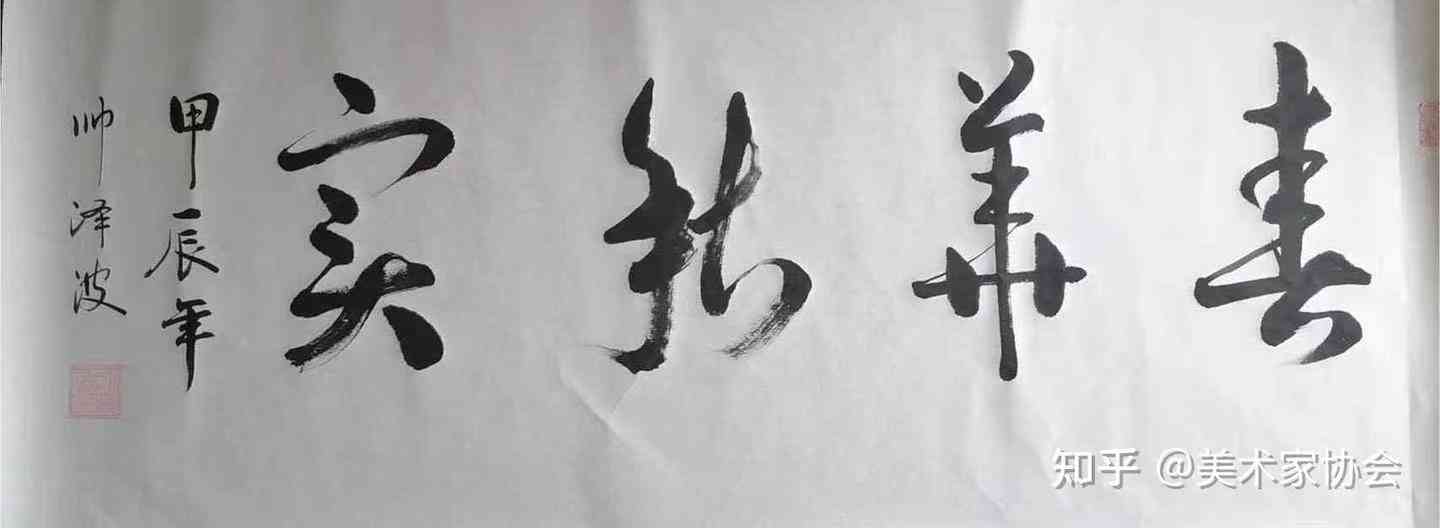 春華秋实
甲辰年
帅泽波
知乎 @美术家协会